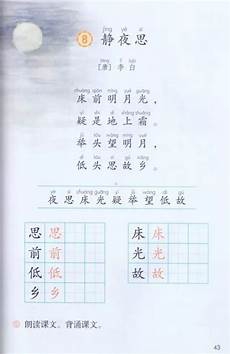 jìng yè sī
8 静夜思
táng lǐ bái
[唐] 李白
chuáng qián míng yuè guāng
床前明月光，
yí shì dì shàng shuāng
疑是地上霜。
jǔ tóu wàng míng yuè
举头望明月，
dī tóu sī gù xiāng
低头思故乡。
yè sī chuáng guāng yí jǔ wàng dī gù
夜思床光疑举望低故
思思 床床
前前 光光
低低 故故
乡乡
朗读课文。背诵课文。
43